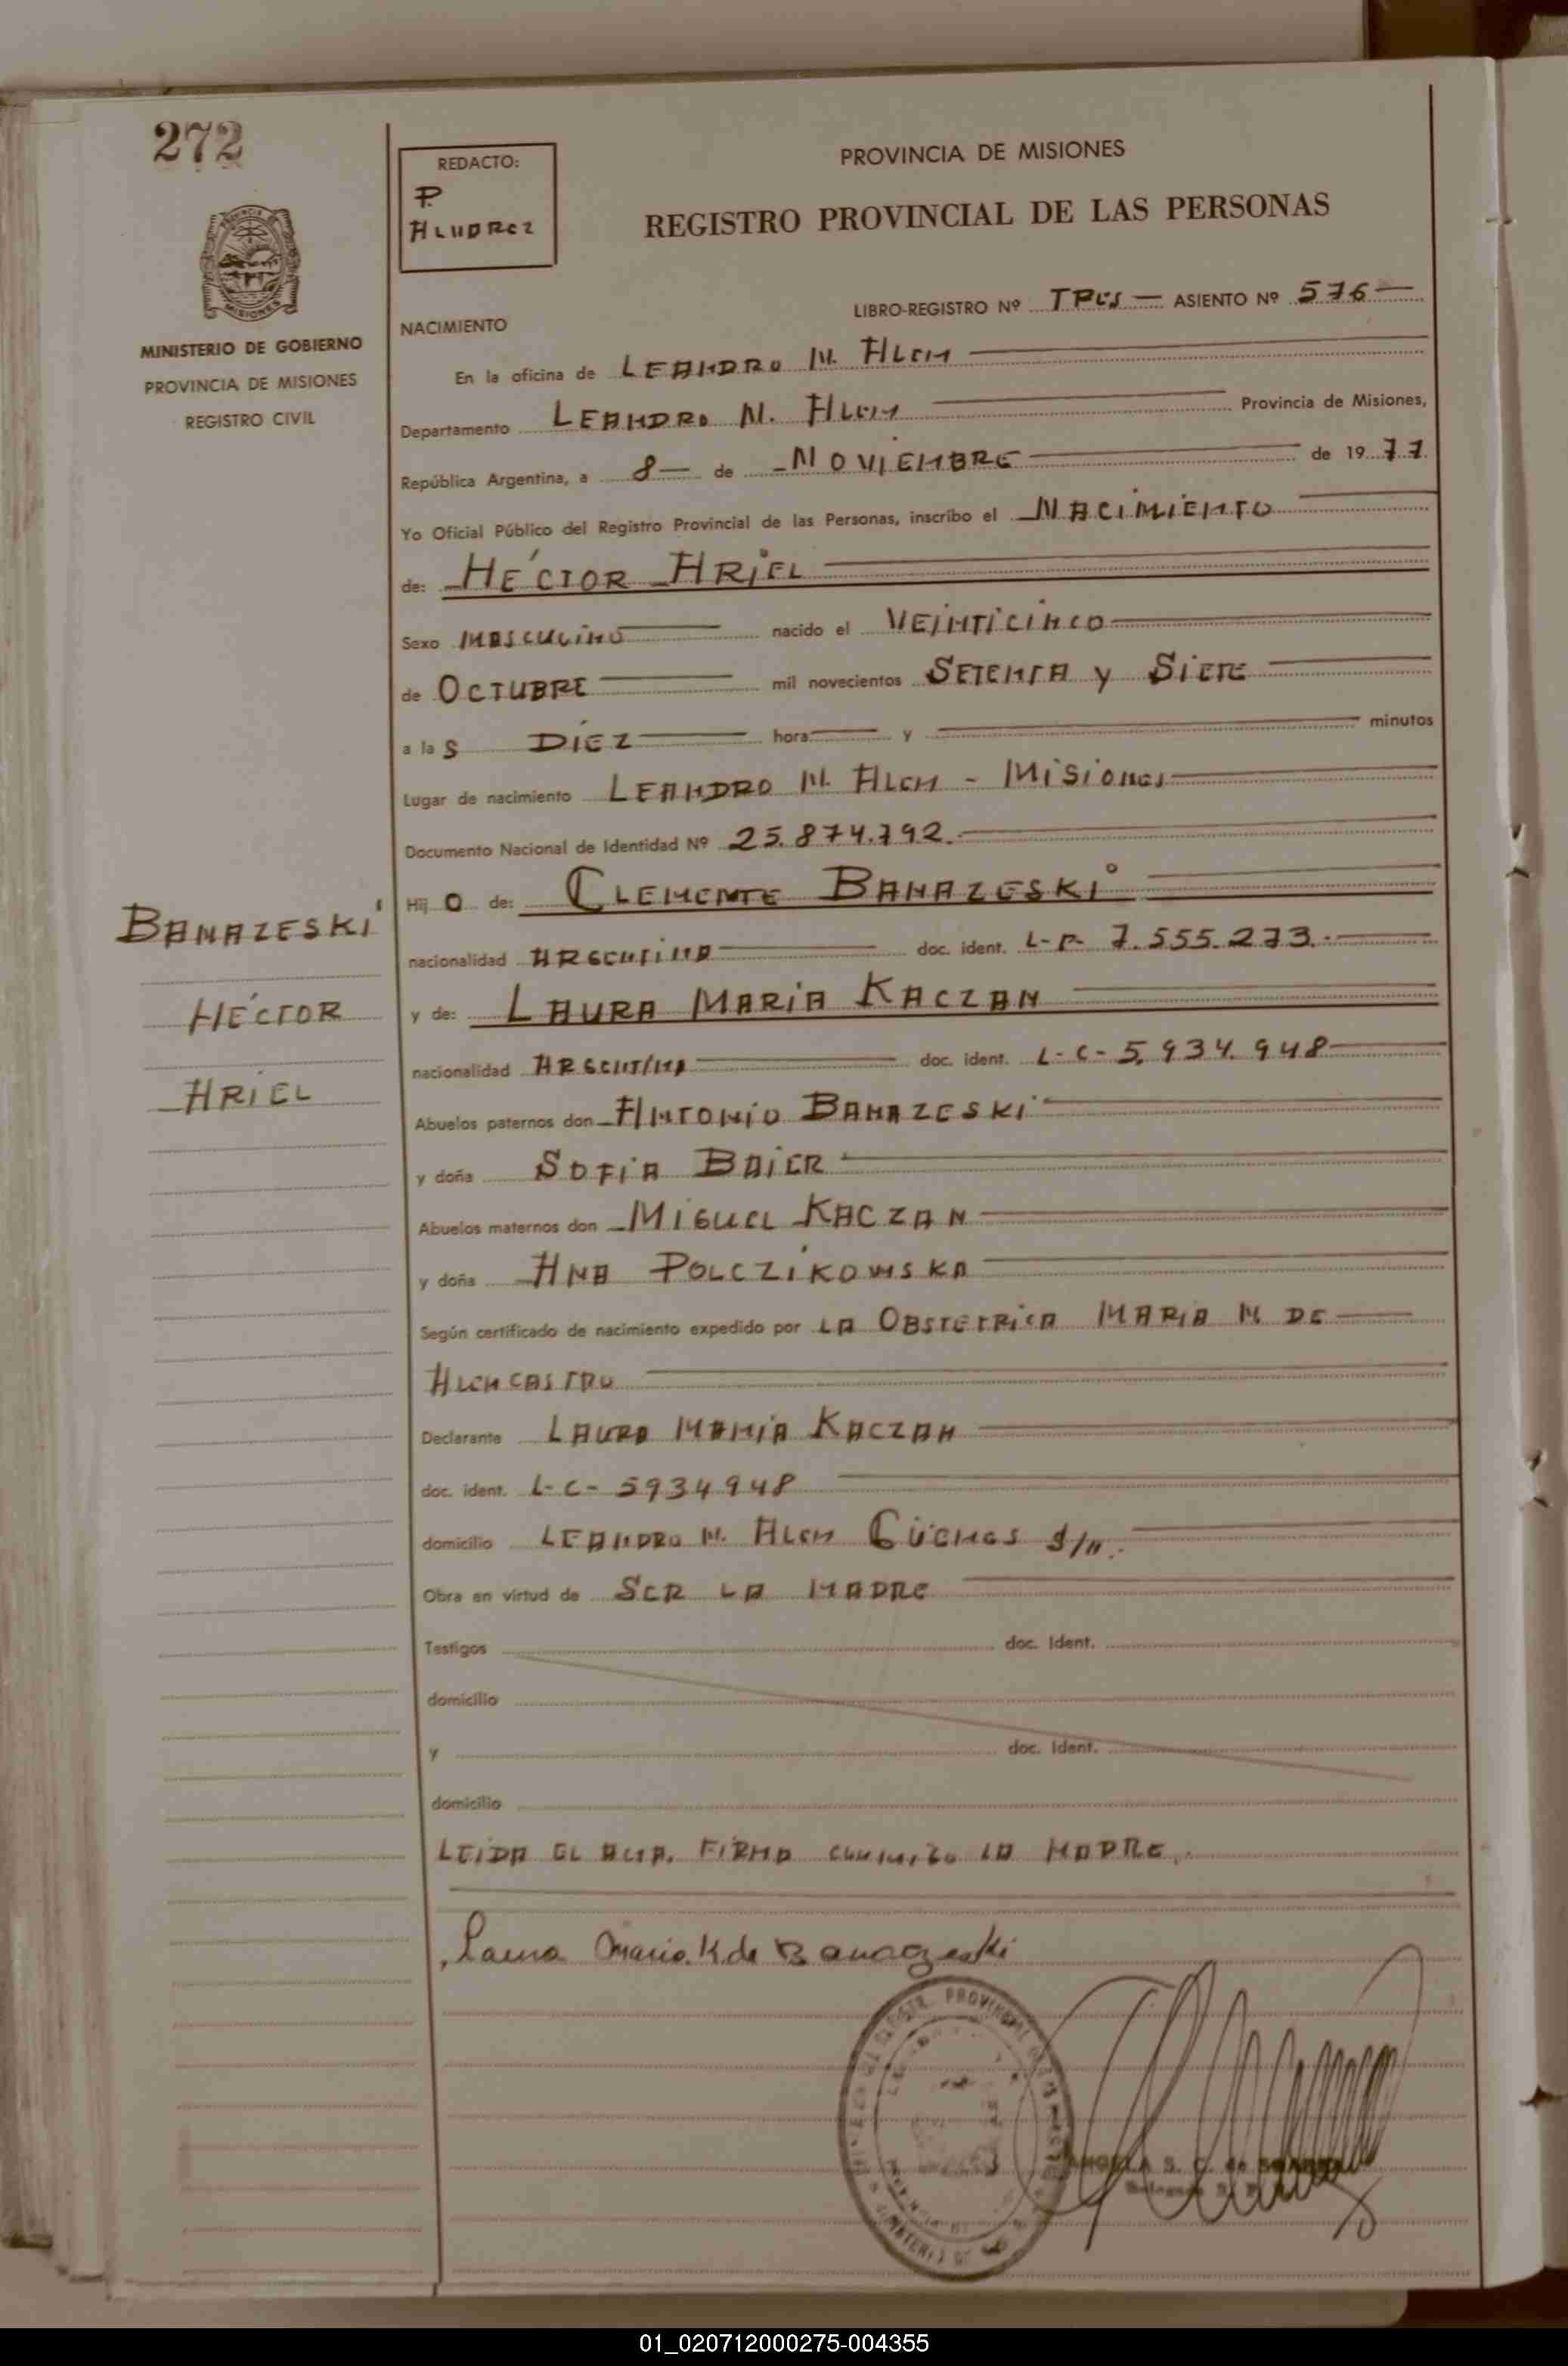 272
REDACTO:
P.
ALVAREZ
PROVINCIA DE MISIONES
REGISTRO PROVINCIAL DE LAS PERSONAS
MINISTERIO DE GOBIERNO
PROVINCIA DE MISIONES
REGISTRO CIVIL
LIBRO-REGISTRO Nº TRES — ASIENTO Nº 576 —
NACIMIENTO
En la oficina de LEANDRO N. ALEM
Departamento LEANDRO N. ALEM Provincia de Misiones,
República Argentina, a 8 — de NOVIEMBRE de 1977.
Yo Oficial Público del Registro Provincial de las Personas, inscribo el NACIMIENTO
de: HÉCTOR ARIEL
Sexo MASCULINO nacido el VEINTICINCO
de OCTUBRE mil novecientos SETENTA y SIETE
a las DIEZ hora y minutos
Lugar de nacimiento LEANDRO N. ALEM - MISIONES
Documento Nacional de Identidad Nº 25.874.792.
Hijo de: CLEMENTE BANAZESKI
nacionalidad ARGENTINA doc. ident. 7.555.273.
y de: LAURA MARIA KACZAN
nacionalidad ARGENTINA doc. ident. L-C- 5.934.948
BANAZESKI
HÉCTOR
ARIEL
Abuelos paternos don ANTONIO BANAZESKI
y doña SOFIA BAIER
Abuelos maternos don MIGUEL KACZAN
y doña ANA POLCZIKOWSKA
Según certificado de nacimiento expedido por LA OBSTETRICA MARIA M. DE
ALENCASTRO
Declarante LAURA MARIA KACZAN
doc. ident. L-C- 5934948
domicilio LEANDRO N. ALEM GÜEMES S/N.
Obra en virtud de SER LA MADRE
Testigos doc. Ident.
domicilio
y doc. Ident.
domicilio
LEIDA EL ACTA. FIRMA CONMIGO LA MADRE.
Laura Maria K. de Banazeski
01_020712000275-004355